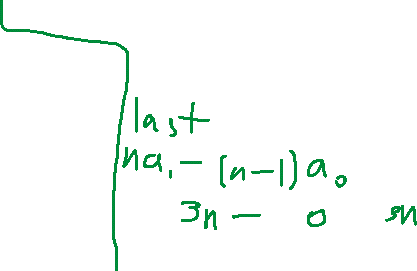 last
na₁ - (n-1)a₀
3n - 0 3n